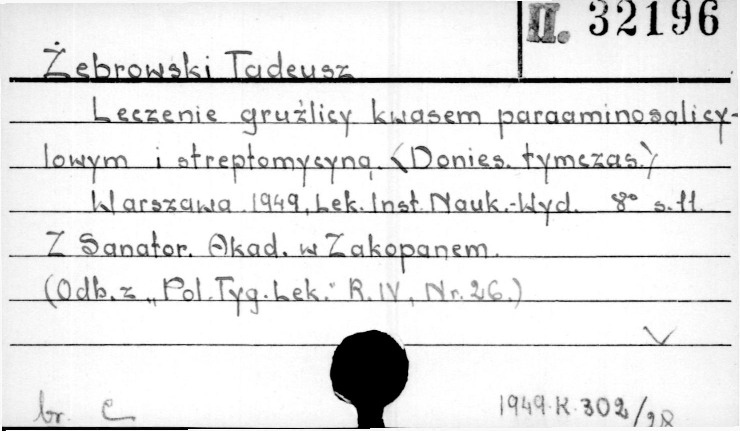 II. 32196
Żebrowski Tadeusz
Leczenie gruźlicy kwasem paraaminosalicy-
lowym i streptomycyną. <Donies. tymczas.>
Warszawa 1949, Lek. Inst. Nauk.-Wyd. 8° s. 11.
Z Sanator. Akad. w Zakopanem.
(Odb. z „Pol. Tyg. Lek." R. IV, Nr. 26.)
br. C 1949 K 302/28